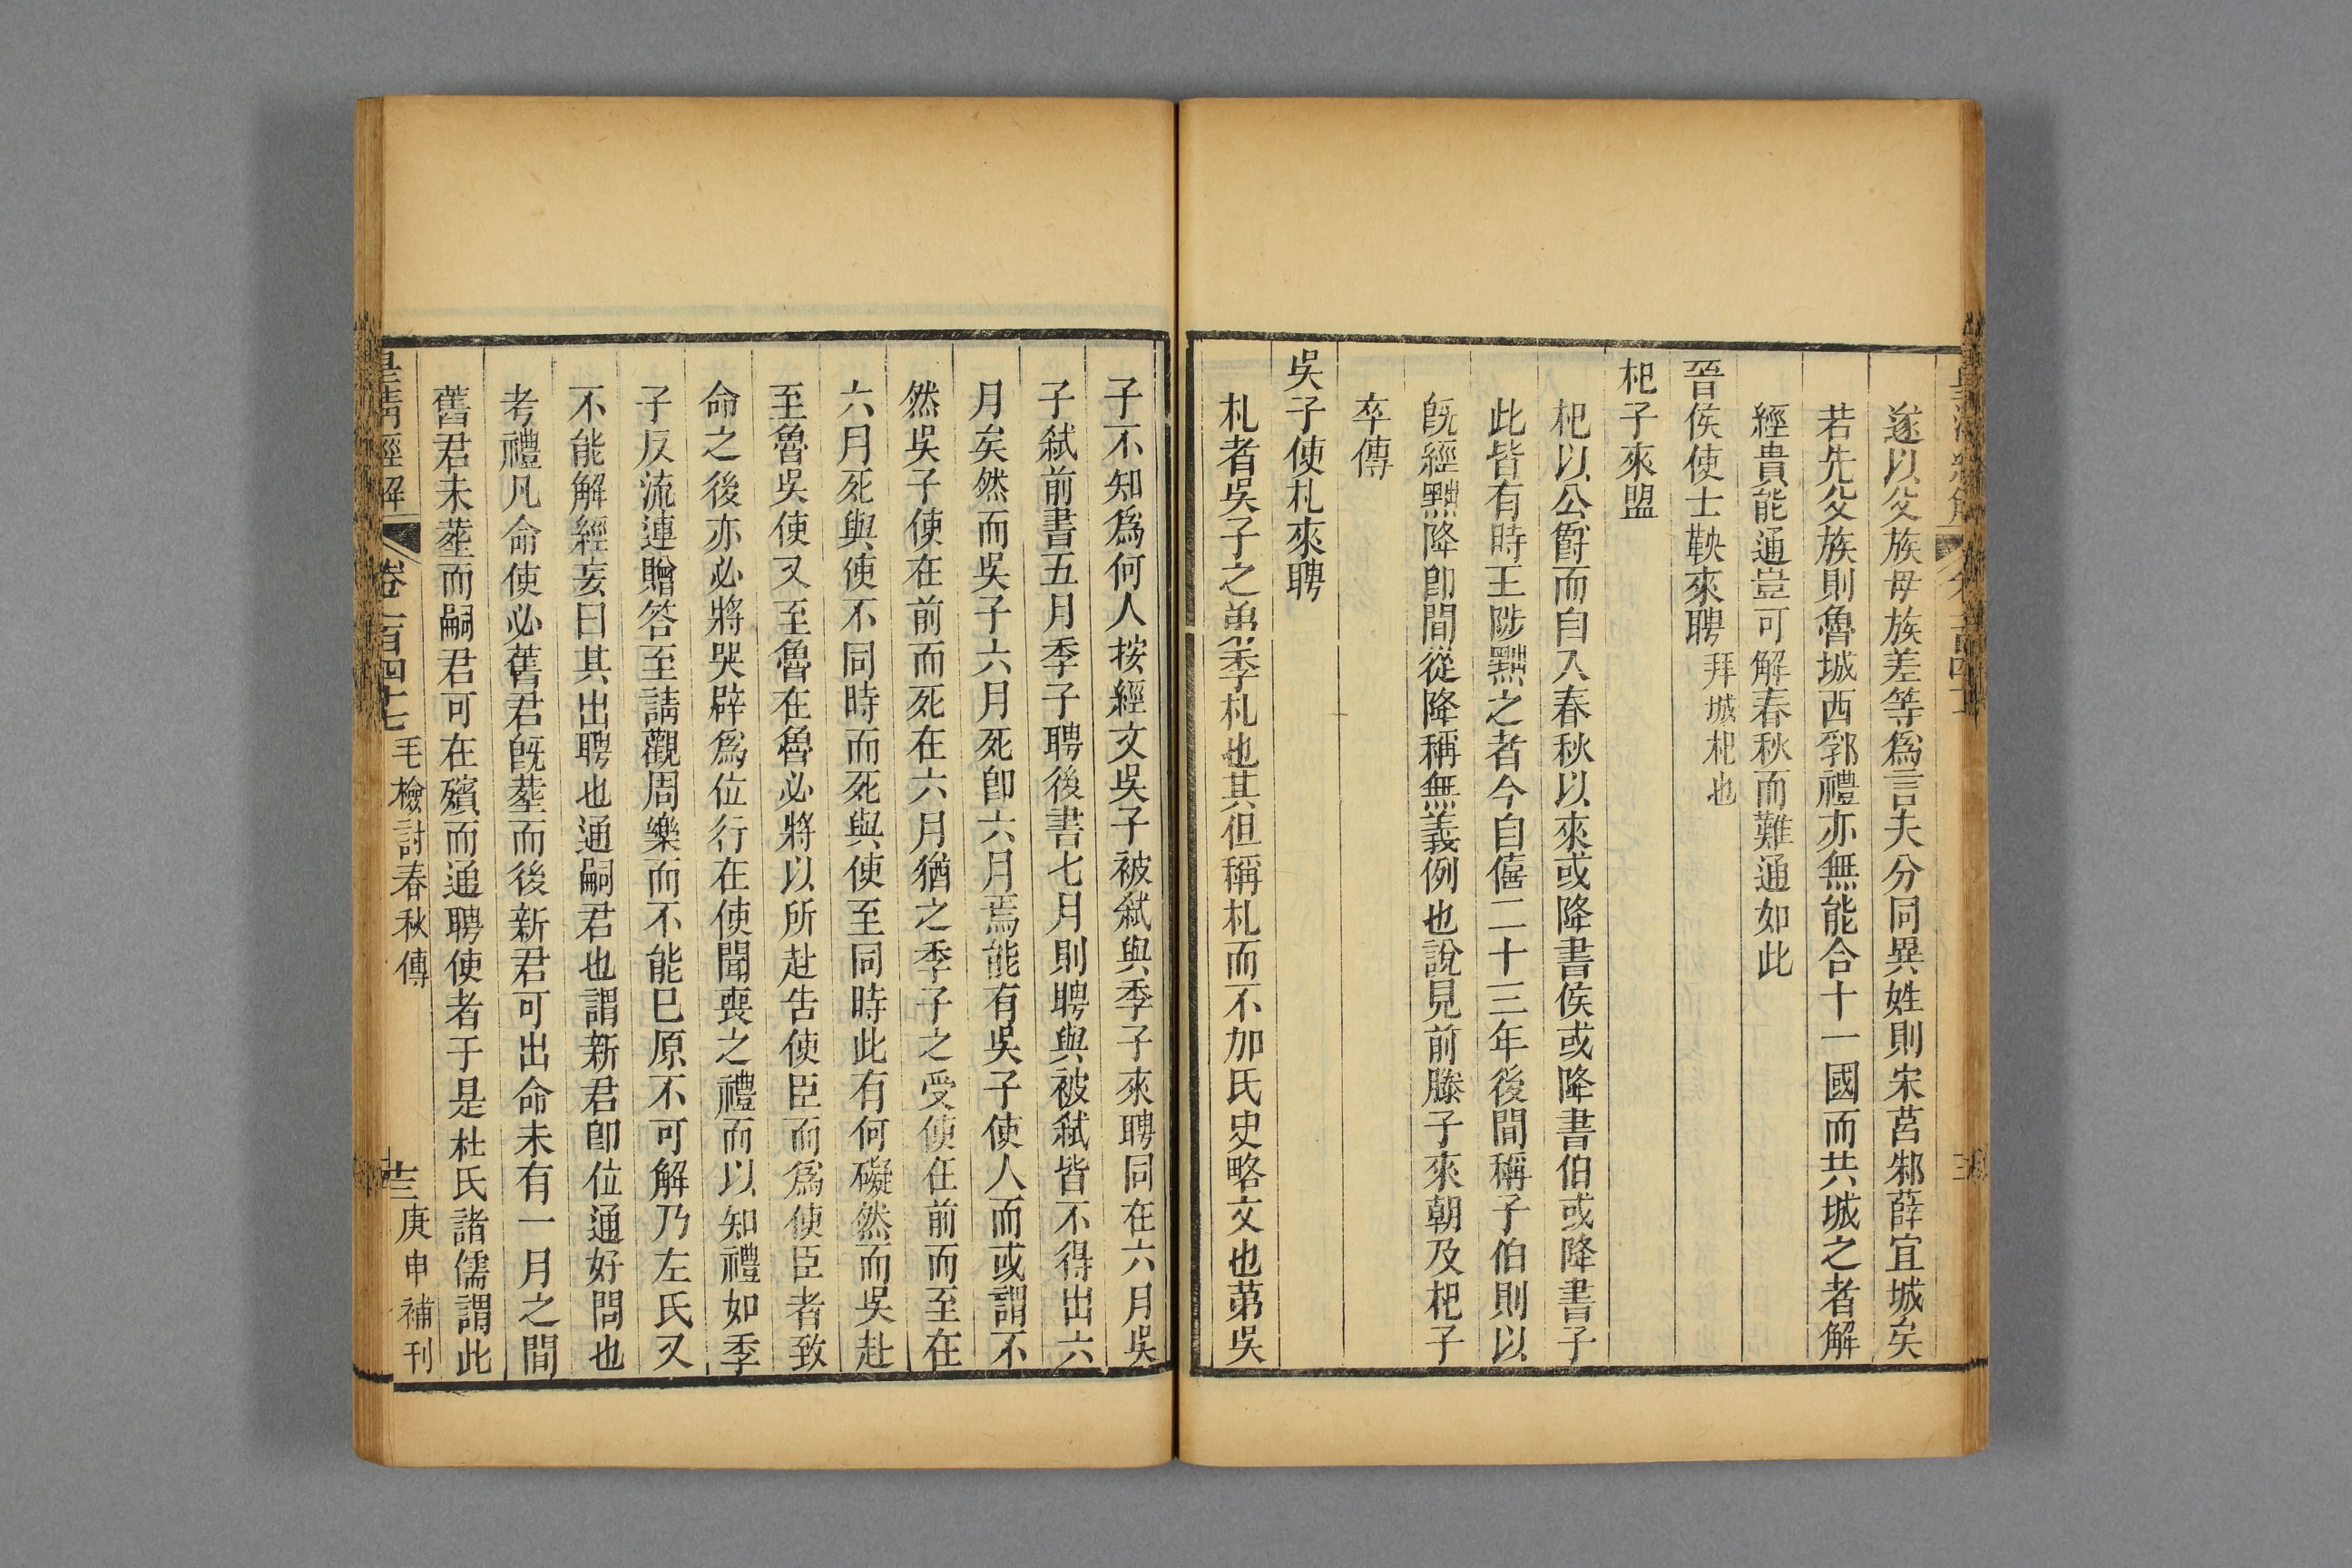 遂以父族母族差等爲言夫分同異姓則宋莒邾薛宜城矣
若先父族則魯城西郛禮亦無能合十一國而共城之者解
經貴能通豈可解春秋而難通如此
晉侯使士鞅來聘拜城杞也
杞子來盟
杞以公爵而自入春秋以來或降書侯或降書伯或降書子
此皆有時王陟黜之者今自僖二十三年後間稱子伯則以
旣經黜降卽間從降稱無義例也說見前滕子來朝及杞子
卒傳
吳子使札來聘
札者吳子之弟季札也其但稱札而不加氏史略文也第吳
子不知爲何人按經文吳子被弒與季子來聘同在六月吳
子弒前書五月季子聘後書七月則聘與被弒皆不得出六
月矣然而吳子六月死卽六月焉能有吳子使人而或謂不
然吳子使在前而死在六月猶之季子之受使在前而至在
六月死與使不同時而死與使至同時此有何礙然而吳赴
至魯吳使又至魯在魯必將以所赴告使臣而爲使臣者致
命之後亦必將哭辟爲位行在使聞喪之禮而以知禮如季
子反流連贈答至請觀周樂而不能已原不可解乃左氏又
不能解經妄曰其出聘也通嗣君也謂新君卽位通好問也
考禮凡命使必舊君旣塟而後新君可出命未有一月之間
舊君未塟而嗣君可在殯而通聘使者于是杜氏諸儒謂此
皇清經解
卷一百四十七
毛檢討春秋傳
庚申補刊